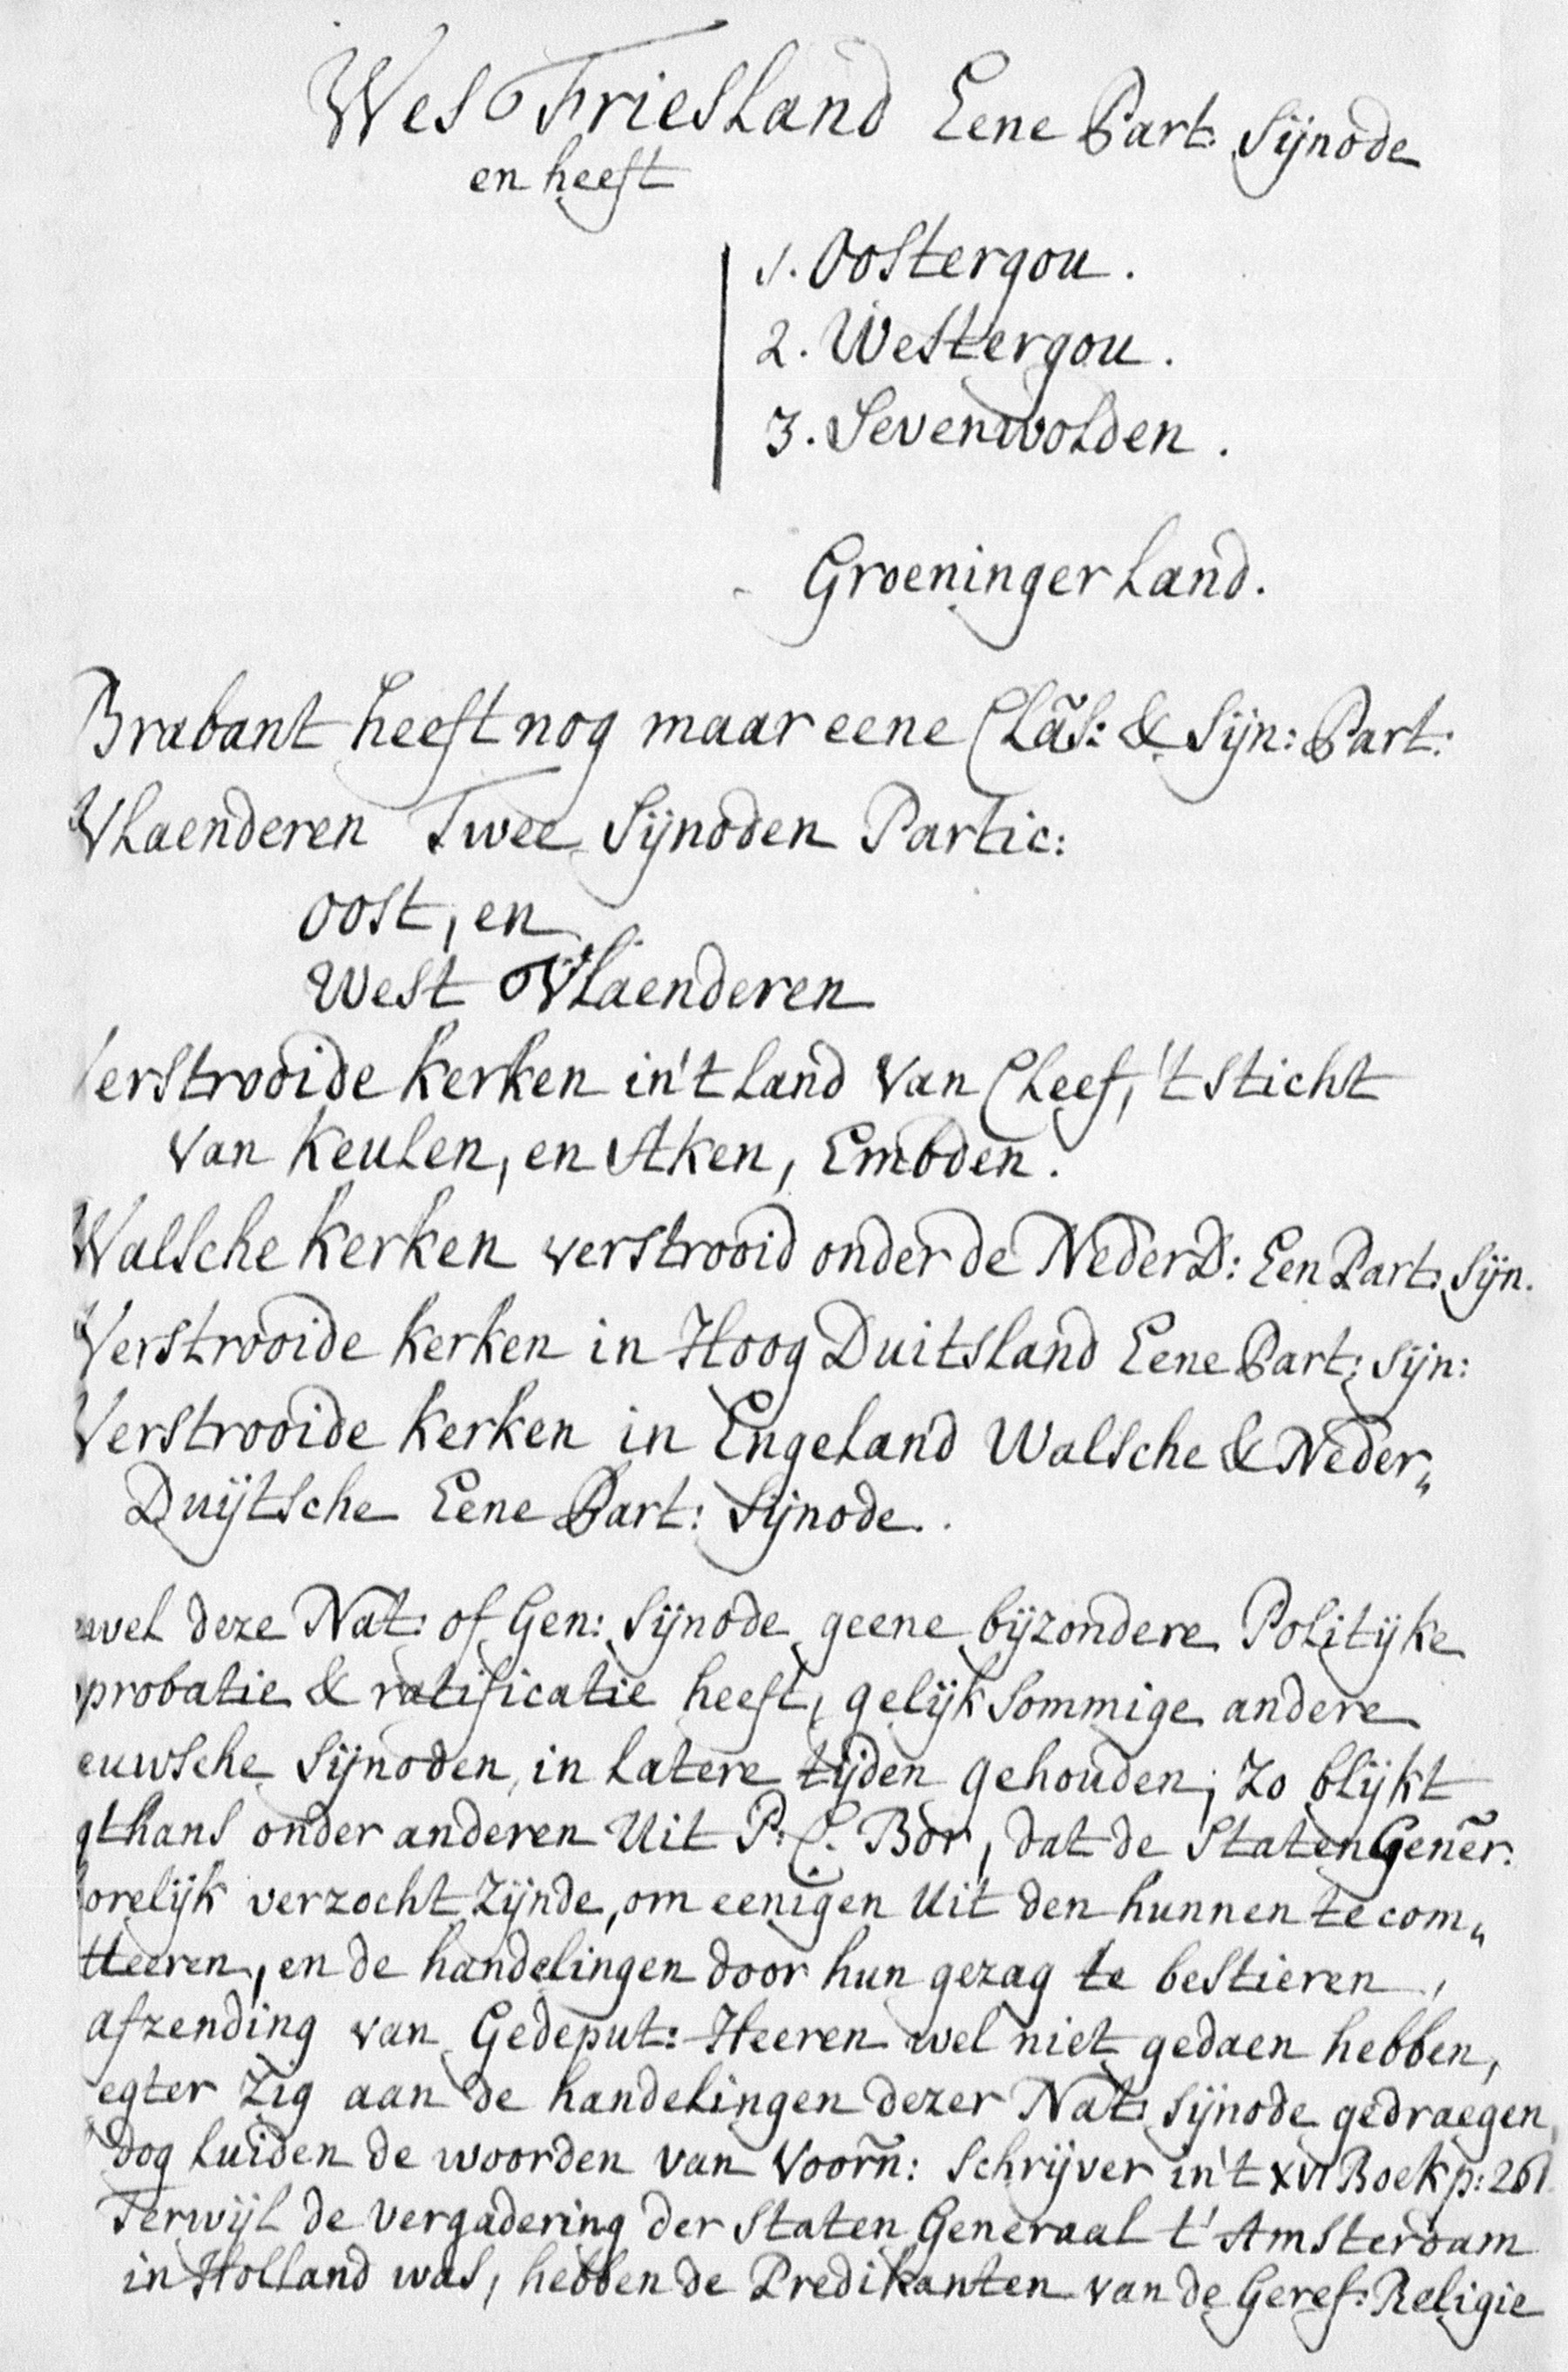 West Friesland Eene Part: Sijnode
en heeft
1. Oostergou.
2. Westergou.
3. Sevenwolden.
Groeningerland.
Brabant heeft nog maar eene Clãs: & Sijn: Part:
Vlaenderen Twee Sijnoden Partic:
Oost, en
West Vlaenderen
erstrooide kerken in't land van Cleef, 't sticht
van Keulen, en Aken, Embden.
Walsche kerken verstrooid onder de NederD: Een Part: Sijn.
Verstrooide kerken in Hoog Duitsland Eene Part: Sijn:
Verstrooide kerken in Engeland Walsche & Neder„
Duijtsche Eene Part: Sijnode.
wel deze Nat: of Gen: Sijnode geene bijzondere Politijke
probatie & ratificatie heeft, gelijk sommige andere
euwsche Sijnoden, in latere tijden gehouden; Zo blijkt
gthans onder anderen Uit P: C. Bor, dat de Staten Genẽr:
orelijk verzocht zijnde, om eenigen Uit den hunnen te com„
tteeren, en de handelingen door hun gezag te bestieren,
afzending van Gedeput: Heeren wel niet gedaen hebben,
egter zig aan de handelingen dezer Nat: Sijnode gedraegen,
dog luiden de woorden van Voorñ: Schrijver in't XVI Boek p: 261.
Terwijl de vergadering der Staten Generaal t' Amsterdam
in Holland was, hebben de Predikanten van de Geref: Religie